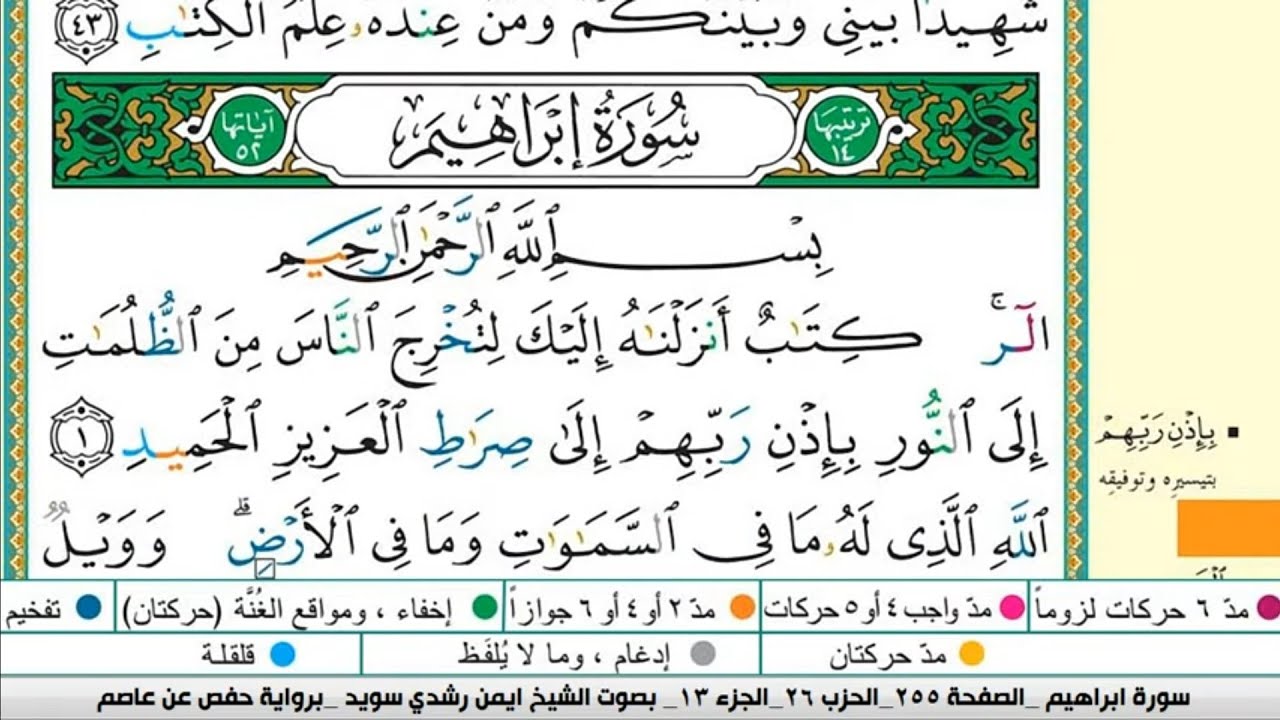 شَهِيدًا بَيْنِي وَبَيْنَكُمْ وَمَنْ عِندَهُۥ عِلْمُ ٱلْكِتَٰبِ ٤٣
ترتيبها ١٤
سُورَةُ إِبْرَاهِيمَ
آياتها ٥٢
بِسْمِ ٱللَّهِ ٱلرَّحْمَٰنِ ٱلرَّحِيمِ
الٓرۚ كِتَٰبٌ أَنزَلْنَٰهُ إِلَيْكَ لِتُخْرِجَ ٱلنَّاسَ مِنَ ٱلظُّلُمَٰتِ
إِلَى ٱلنُّورِ بِإِذْنِ رَبِّهِمْ إِلَىٰ صِرَٰطِ ٱلْعَزِيزِ ٱلْحَمِيدِ ١
ٱللَّهِ ٱلَّذِى لَهُۥ مَا فِى ٱلسَّمَٰوَٰتِ وَمَا فِى ٱلْأَرْضِۗ وَوَيْلٌ
بِإِذْنِ رَبِّهِمْ
بتيسيره وتوفيقه
مدّ ٦ حركات لزوماً
مدّ واجب ٤ أو ٥ حركات
مدّ ٢ أو ٤ أو ٦ جوازاً
إخفاء ، ومواقع الغُنَّة (حركتان)
تفخيم
مدّ حركتان
إدغام ، وما لا يُلفَظ
قلقلة
سورة ابراهيم _الصفحة ٢٥٥_الحزب ٢٦_الجزء ١٣_ بصوت الشيخ ايمن رشدي سويد _برواية حفص عن عاصم